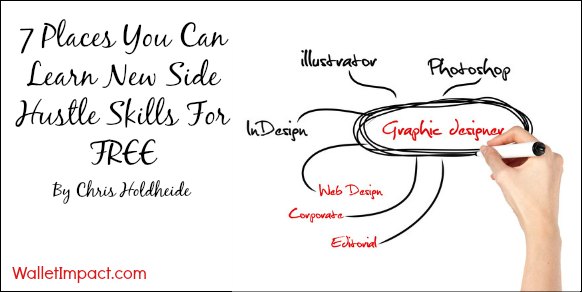 7 Places You Can
Learn New Side
Hustle Skills For
FREE
By Chris Holdheide
WalletImpact.com
illustrator
Photoshop
InDesign
Graphic designer
Web Design
Corporate
Editorial